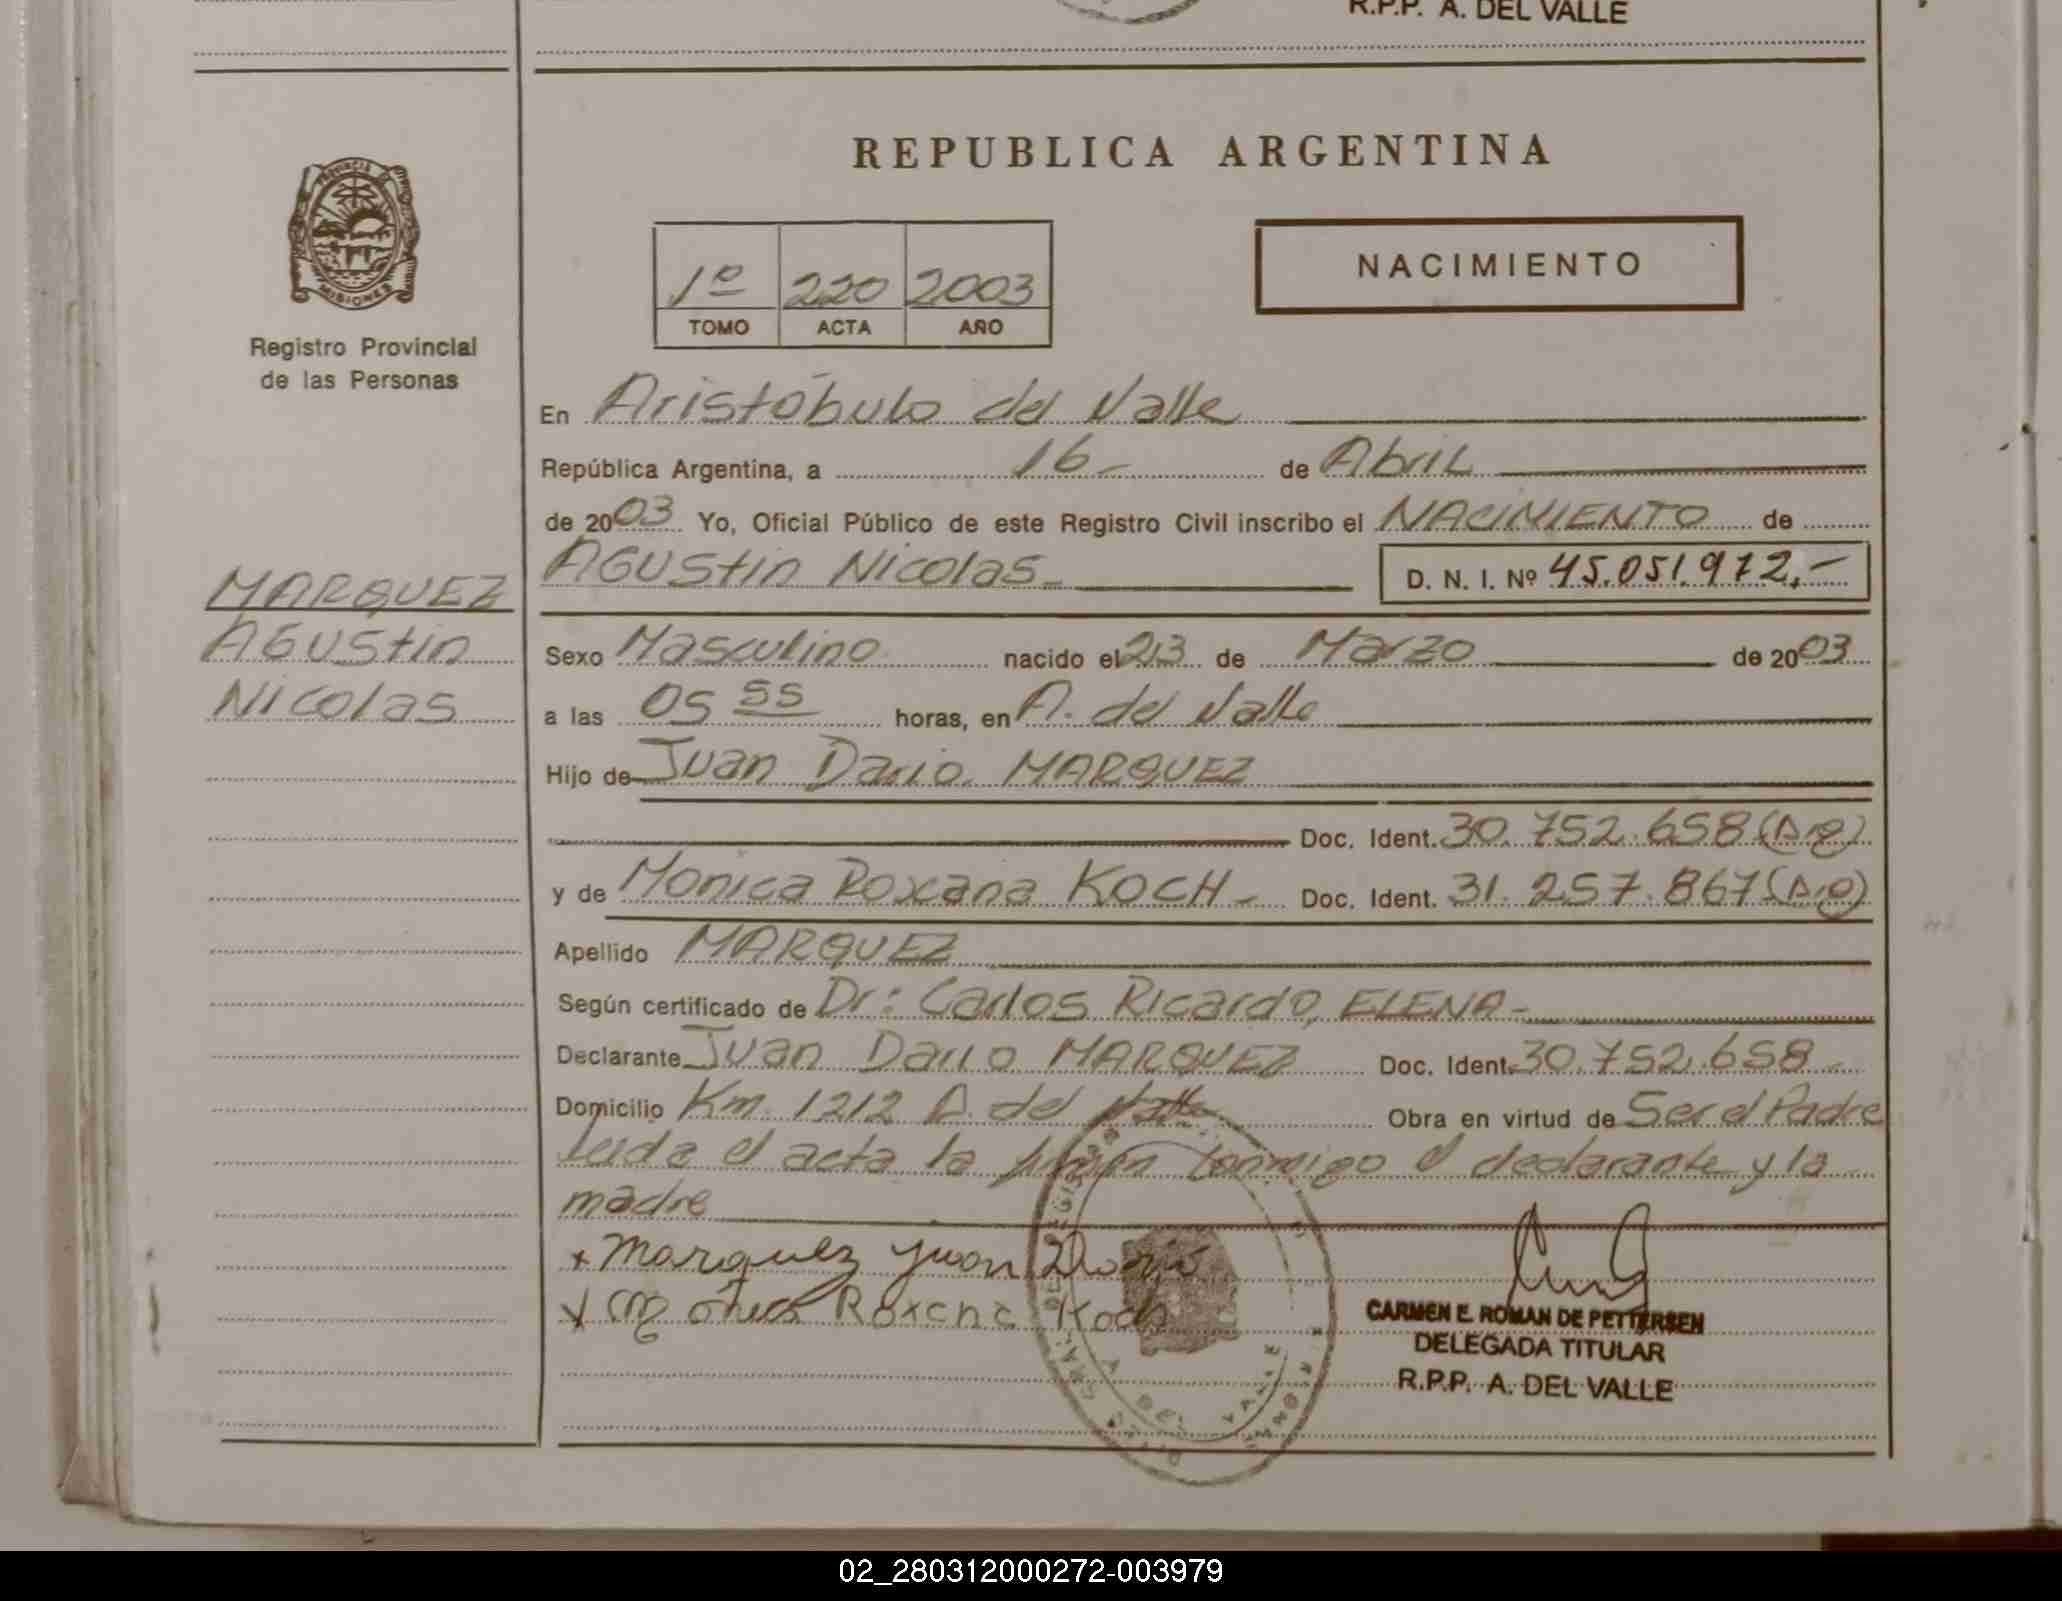 R.P.P. A. DEL VALLE
PROVINCIA DE
MISIONES
Registro Provincial
de las Personas
MARQUEZ
AGUStin
Nicolas
REPUBLICA ARGENTINA
1º 220 2003
TOMO ACTA AÑO
NACIMIENTO
En Aristóbulo del Valle
República Argentina, a 16- de Abril
de 2003 Yo, Oficial Público de este Registro Civil inscribo el NACIMIENTO de
AGUStin Nicolas- D. N. I. Nº 45.051.972.-
Sexo Masculino nacido el 23 de Marzo de 2003
a las 05 55 horas, en A. del Valle
Hijo de Juan Dario MARQUEZ
Doc. Ident. 30.752.658 (Arg)
y de Monica Roxana KOCH - Doc. Ident. 31.257.867 (Arg)
Apellido MARQUEZ
Según certificado de Dr: Carlos Ricardo, ELENA -
Declarante Juan Dario MARQUEZ Doc. Ident. 30.752.658 -
Domicilio Km. 1212 A. del Valle Obra en virtud de Ser el Padre
leida el acta la firman conmigo el declarante y la
madre
x Marquez Juan Dario
x Monica Roxana Koch
CARMEN E. ROMAN DE PETTERSEN
DELEGADA TITULAR
R.P.P. A. DEL VALLE
02_280312000272-003979